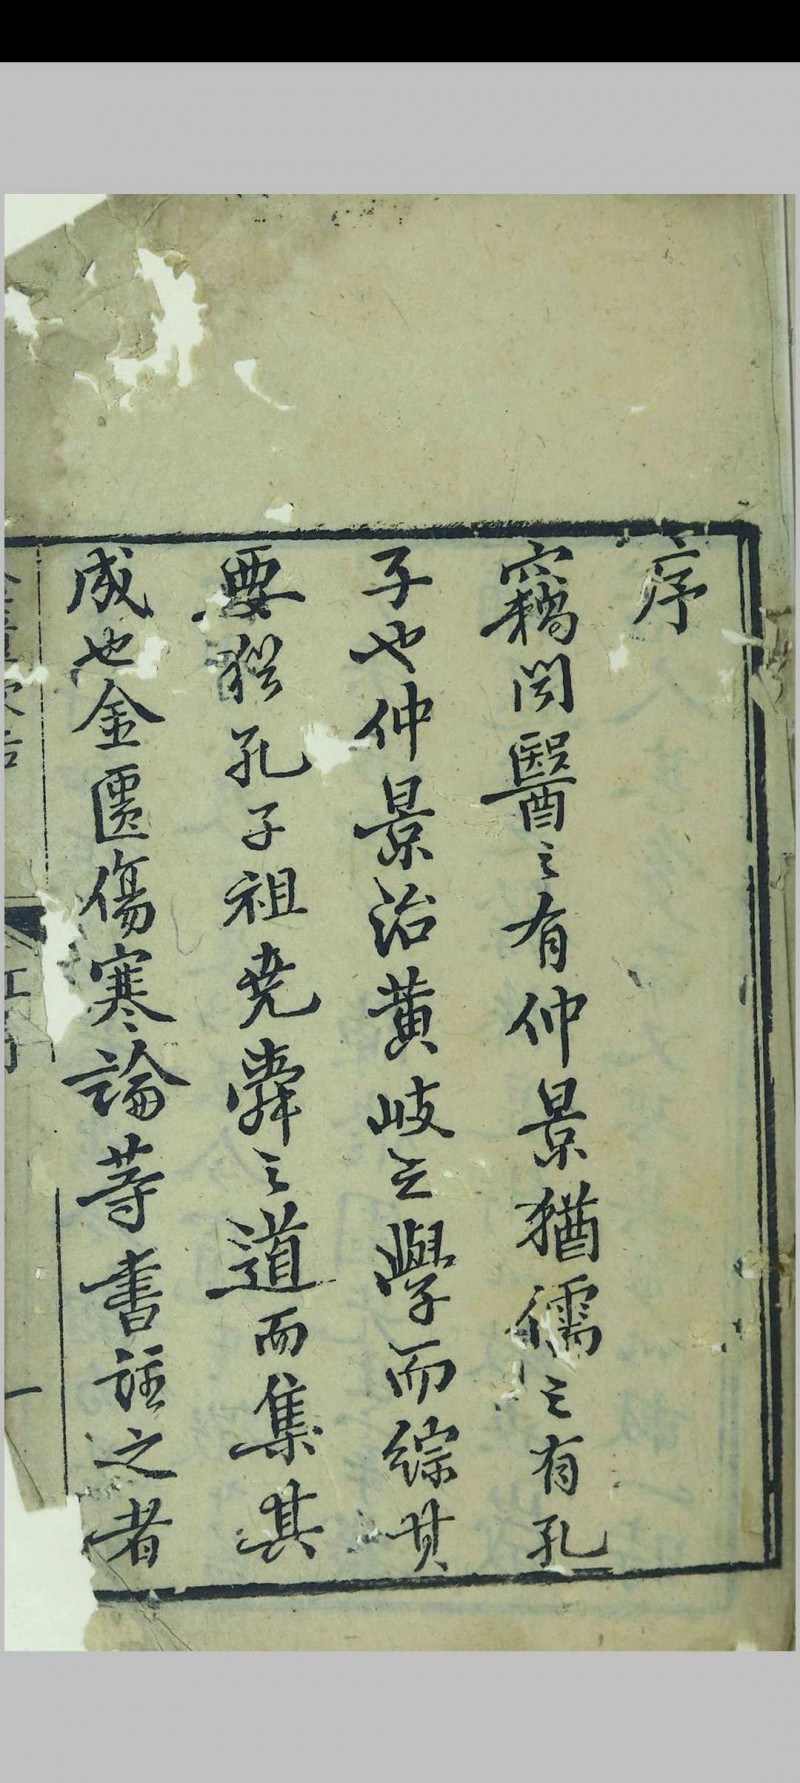 序
竊聞醫之有仲景猶儒之有孔
子也仲景治黃岐之學而綜其
要猶孔子祖堯舜之道而集其
成也金匱傷寒論等書註之者
一